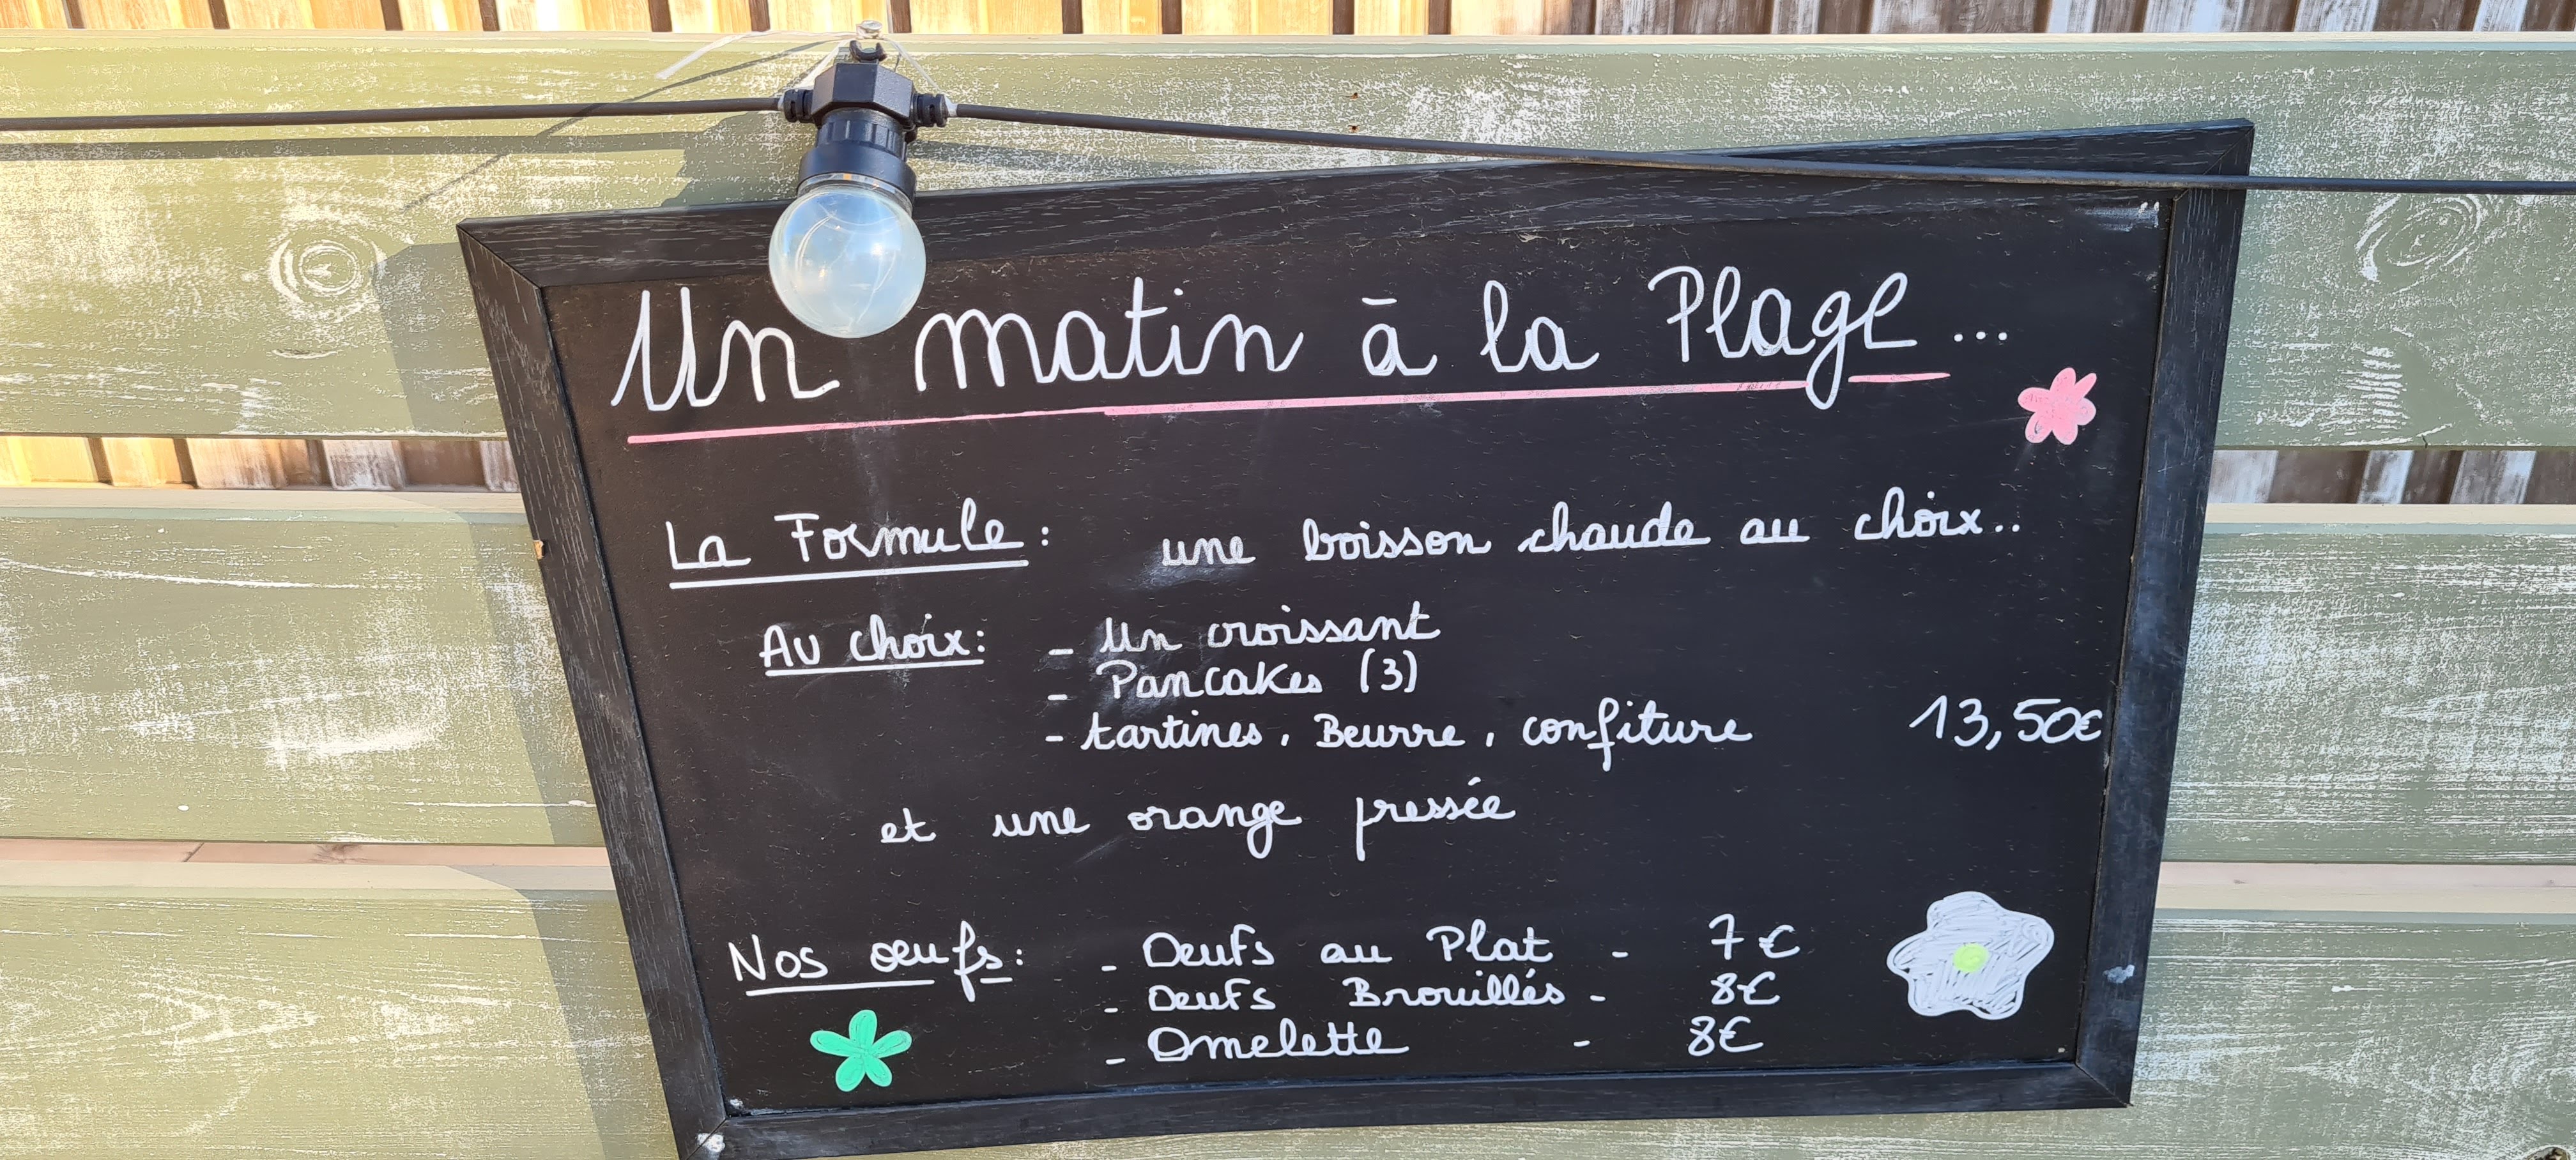 Un matin à la Plage...
La Formule : une boisson chaude au choix..
Au choix : - Un croissant
- Pancakes (3)
- tartines, Beurre, confiture 13,50€
et une orange pressée
Nos œufs : - Oeufs au Plat - 7€
- Oeufs Brouillés - 8€
- Omelette - 8€